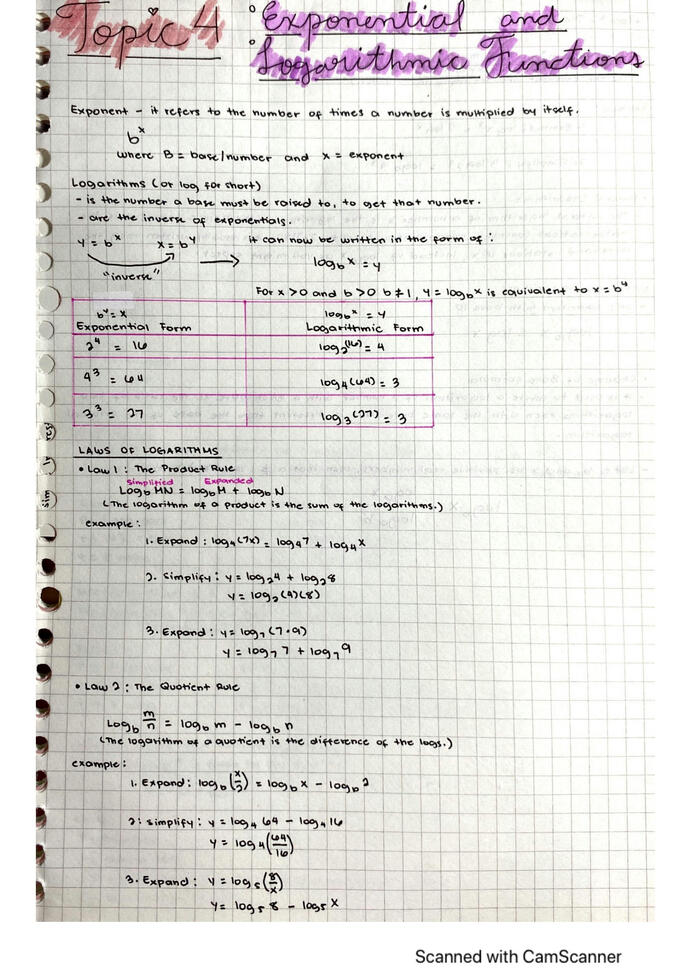 Topic 4 : Exponential and
Logarithmic Functions
Exponent - it refers to the number of times a number is multiplied by itself.
bˣ
where B = base/number and x = exponent
Logarithms (or log, for short)
- is the number a base must be raised to, to get that number.
- are the inverse of exponentials.
y = bˣ x = bʸ it can now be written in the form of :
"inverse" log_b x = y
For x > 0 and b > 0 b ≠ 1, y = log_b x is equivalent to x = bʸ
bʸ = x log_b x = y
Exponential Form Logarithmic Form
2⁴ = 16 log₂(16) = 4
4³ = 64 log₄(64) = 3
3³ = 27 log₃(27) = 3
LAWS OF LOGARITHMS
• Law 1 : The Product Rule
Simplified Expanded
Log_b MN = log_b M + log_b N
(The logarithm of a product is the sum of the logarithms.)
example :
1. Expand : log₄(7x) = log₄7 + log₄x
2. Simplify : y = log₂4 + log₂8
y = log₂(4)(8)
3. Expand : y = log₇(7·9)
y = log₇7 + log₇9
• Law 2 : The Quotient Rule
Log_b m/n = log_b m - log_b n
(The logarithm of a quotient is the difference of the logs.)
example :
1. Expand : log_b(x/2) = log_b x - log_b 2
2: simplify : y = log₄ 64 - log₄ 16
y = log₄(64/16)
3. Expand : y = log₅(8/x)
y = log₅ 8 - log₅ x
Scanned with CamScanner